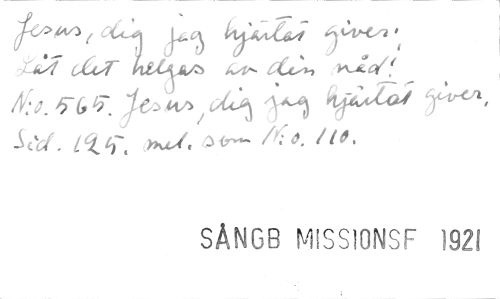 Jesus, dig jag hjärtat giver:
Låt det helgas av din nåd!
N:o. 565. Jesus, dig jag hjärtat giver,
Sid. 125. mel. som N:o. 110.
SÅNGB MISSIONSF 1921